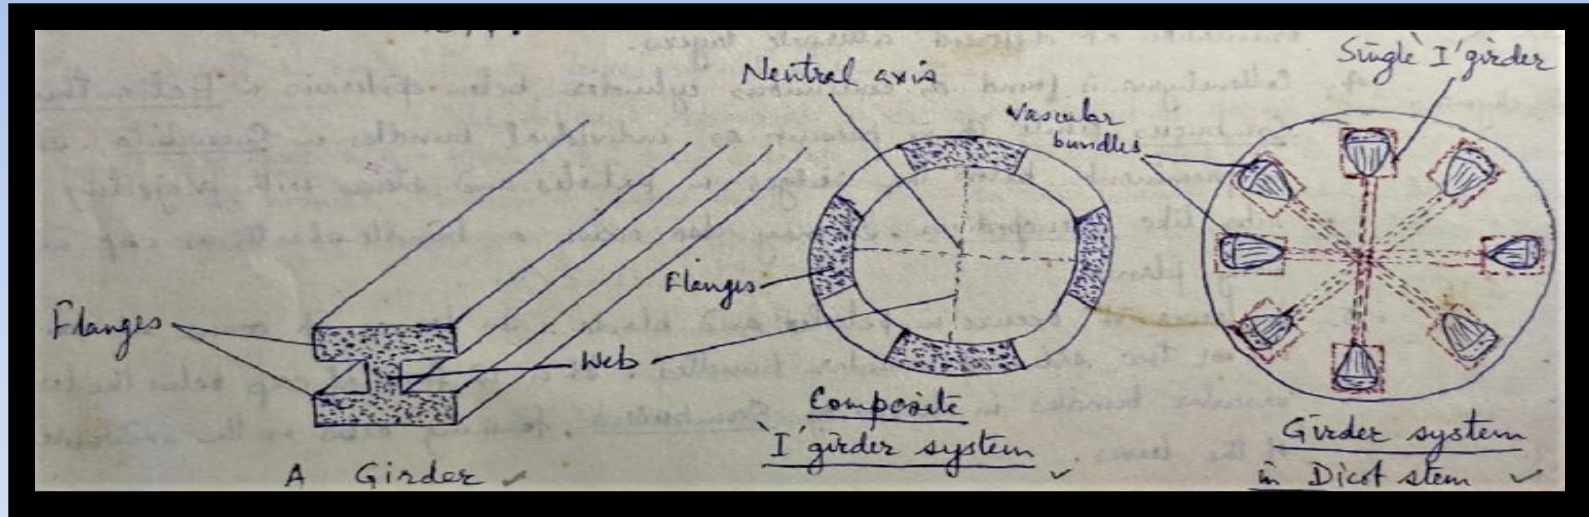 Neutral axis
Single 'I' girder
Vascular
bundles
Flanges
Flanges
Web
Composite
'I' girder system
Girder system
in Dicot stem
A Girder